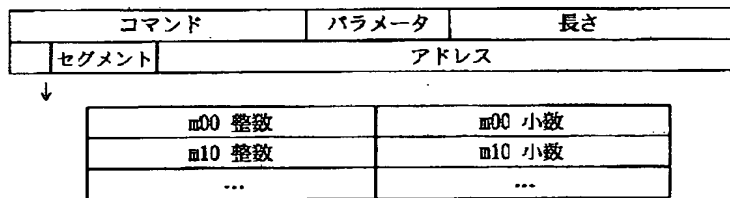 コマンド パラメータ 長さ
セグメント アドレス
↓
m00 整数 m00 小数
m10 整数 m10 小数
... ...